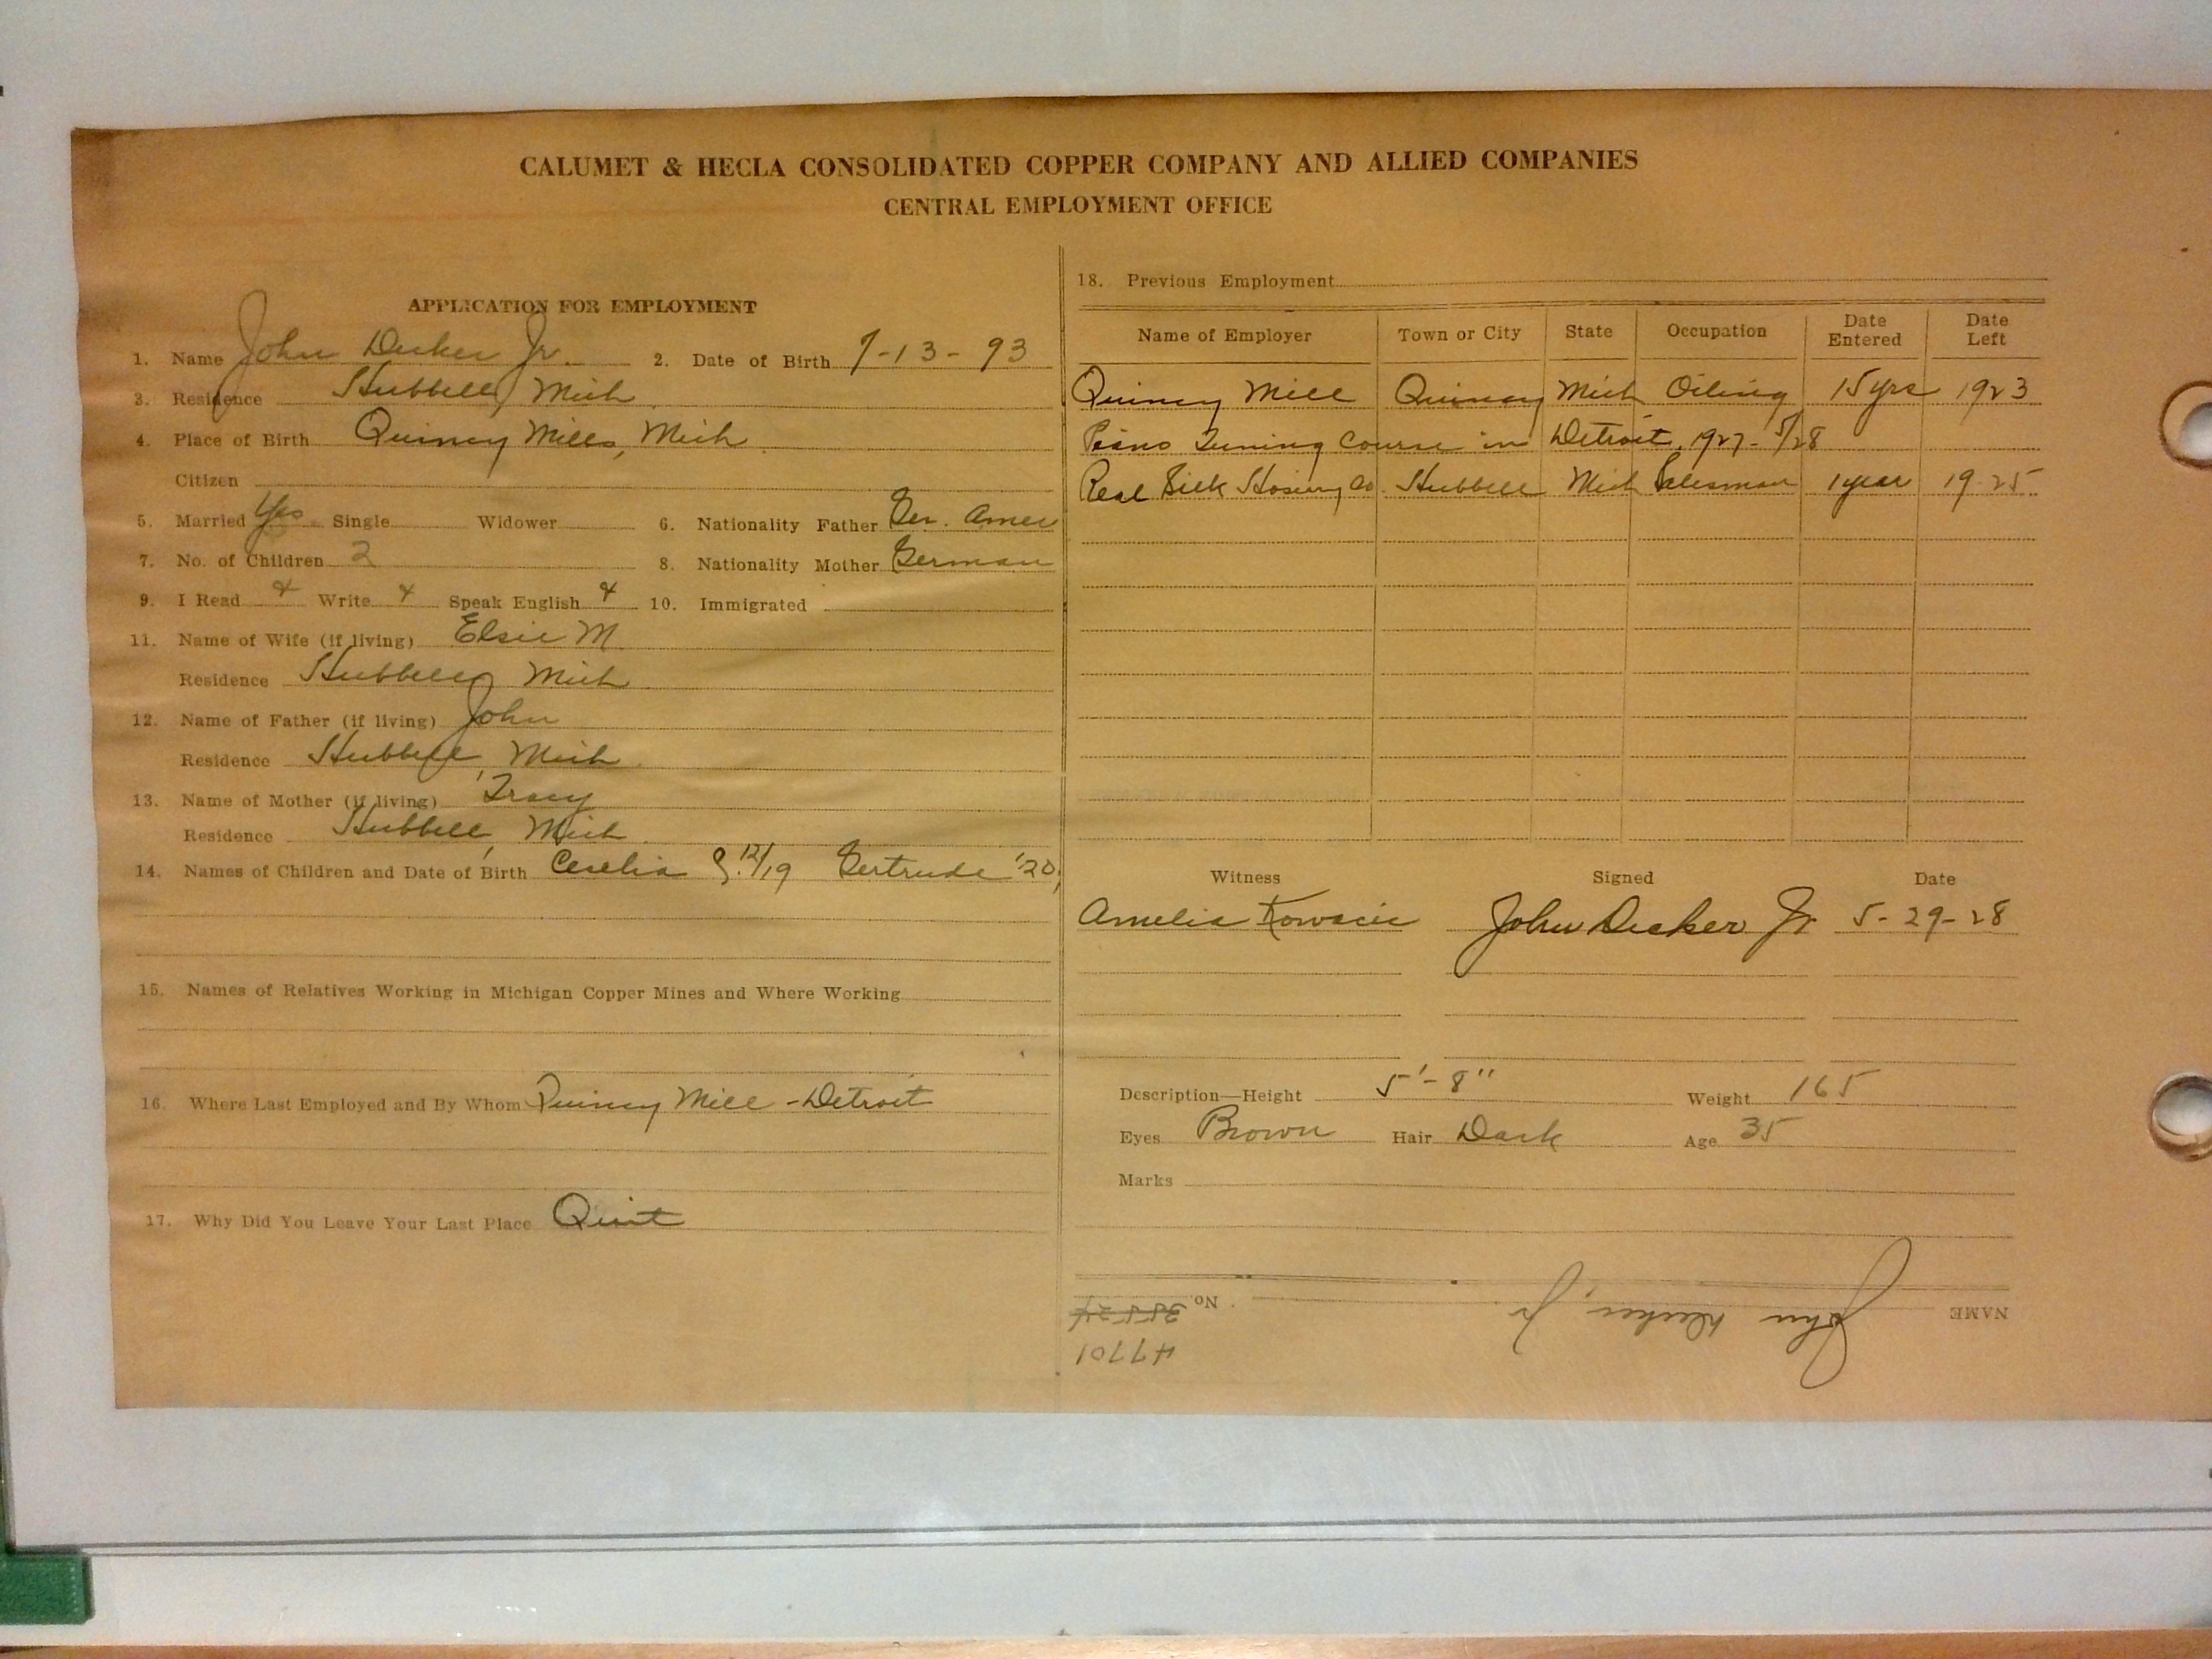 CALUMET & HECLA CONSOLIDATED COPPER COMPANY AND ALLIED COMPANIES
CENTRAL EMPLOYMENT OFFICE
APPLICATION FOR EMPLOYMENT
1. Name John Decker Jr. 2. Date of Birth 7-13-93
3. Residence Hubbell, Mich
4. Place of Birth Quincy Mills, Mich
Citizen
5. Married Yes Single Widower 6. Nationality Father Ger. Amer
7. No. of Children 2 8. Nationality Mother German
9. I Read Write Speak English 10. Immigrated
11. Name of Wife (if living) Elsie M
Residence Hubbell, Mich
12. Name of Father (if living) John
Residence Hubbell, Mich
13. Name of Mother (if living) Tracy
Residence Hubbell, Mich
14. Names of Children and Date of Birth Cecelia 12/19 Gertrude '20
15. Names of Relatives Working in Michigan Copper Mines and Where Working
16. Where Last Employed and By Whom Quincy Mill - Detroit
17. Why Did You Leave Your Last Place Quit
18. Previous Employment
Name of Employer Town or City State Occupation Date Entered Date Left
Quincy Mill Quincy Mich Oiling 15 yrs 1923
Piano Tuning Course in Detroit, 1927 - 5/28
Real Silk Hosiery Co. Hubbell Mich Salesman 1 year 1925
Witness Signed Date
Amelia John Decker Jr 5-29-28
Description—Height 5'-8" Weight 165
Eyes Brown Hair Dark Age 35
Marks
NAME John Decker, Jr No.
47701